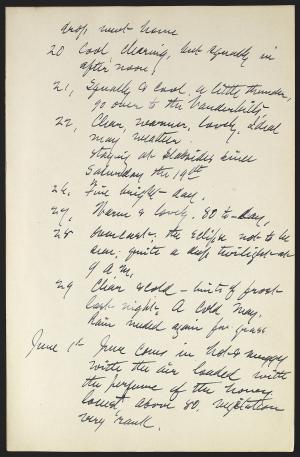 drop, went home
20 Cool, clearing, but squally in
afternoon,
21, Squally & cool, a little thunder,
go over to the Vanderbilts,
22, Clear, warmer, lovely, ideal
May weather
Staying at Slabsides since
Saturday the 19th
26, Fine bright day,
27, Warm & lovely. 80 to-day,
28 Overcast; the eclipse not to be
seen; quite a deep twilight at
9 A.M.
29 Clear & cold – hints of frost
last night. A cold May,
Rain needed again for grass
June 1st June comes in hot & muggy
with the air loaded with
the perfume of the honey
locust, above 80, vegetation
very rank.